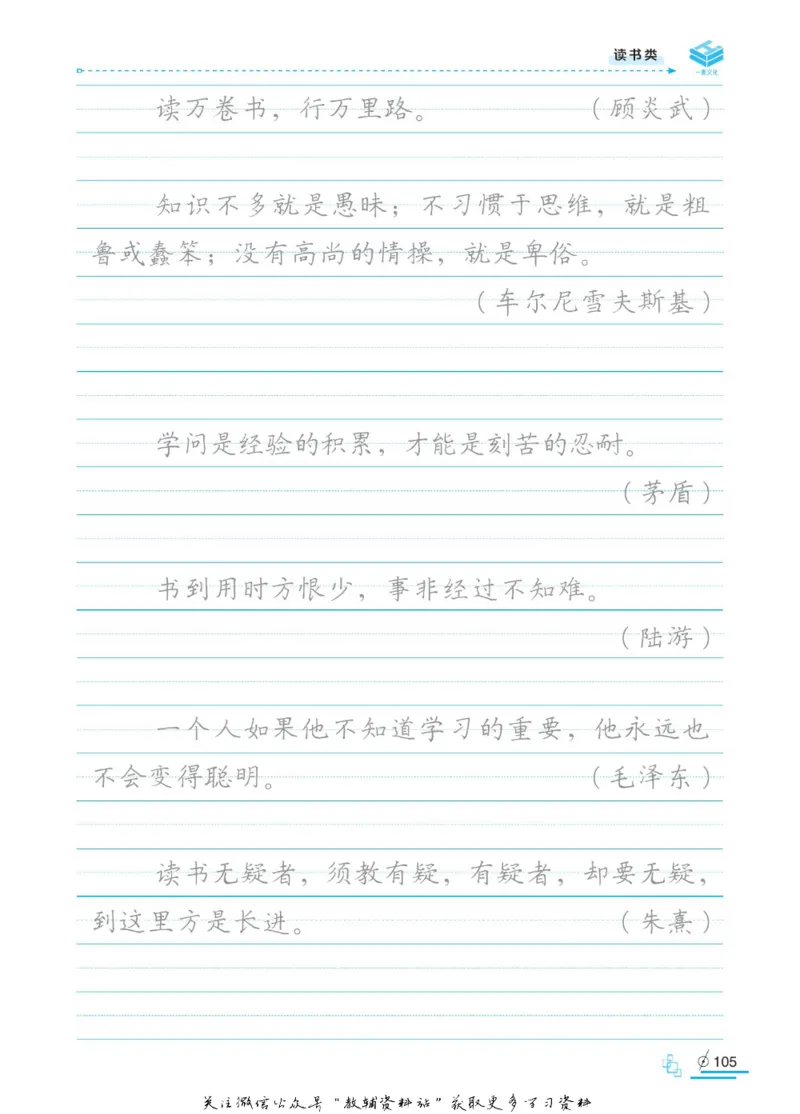 读书类
一本文化
读万卷书，行万里路。（顾炎武）
知识不多就是愚昧；不习惯于思维，就是粗
鲁或蠢笨；没有高尚的情操，就是卑俗。
（车尔尼雪夫斯基）
学问是经验的积累，才能是刻苦的忍耐。
（茅盾）
书到用时方恨少，事非经过不知难。
（陆游）
一个人如果他不知道学习的重要，他永远也
不会变得聪明。（毛泽东）
读书无疑者，须教有疑，有疑者，却要无疑，
到这里方是长进。（朱熹）
105
关注微信公众号“教辅资料站”获取更多学习资料